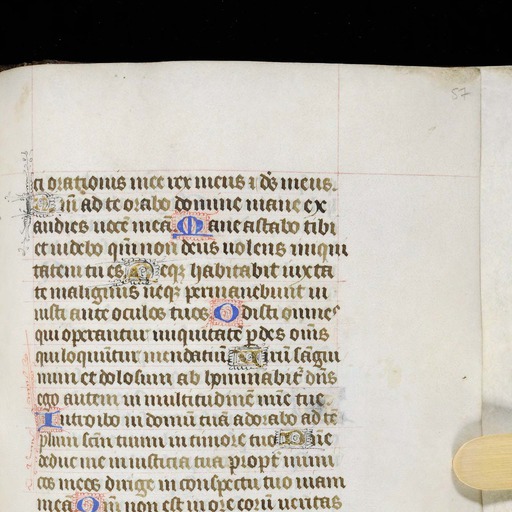 57
ci orationis mee rex meus ⁊ ds̄ meus.
Qm̄ ad te orabo domine mane ex
audies uocē meā Mane astabo tibi
et uidebo qm̄ non deus uolens iniqui
tatem tu es Neq̨ habitabit iuxta
te malignus neq̨ permanebunt in
iusti ante oculos tuos Odisti omnes
qui operantur iniquitatē ꝑdes om̄s
qui loquūtur mendatiū Uirū sangui
num et dolosum ab hominabit᷑ dn̄s
ego autem in multitudinē mīe tue.
Introibo in domū tuā adorabo ad tē
plum scm̄ tuum in timore tuo Dn̄e
deduc me in iusticia tua propt᷑ inimi
cos meos dirige in conspectu tuo uiam
meā Qm̄ non est in ore eorū ueritas